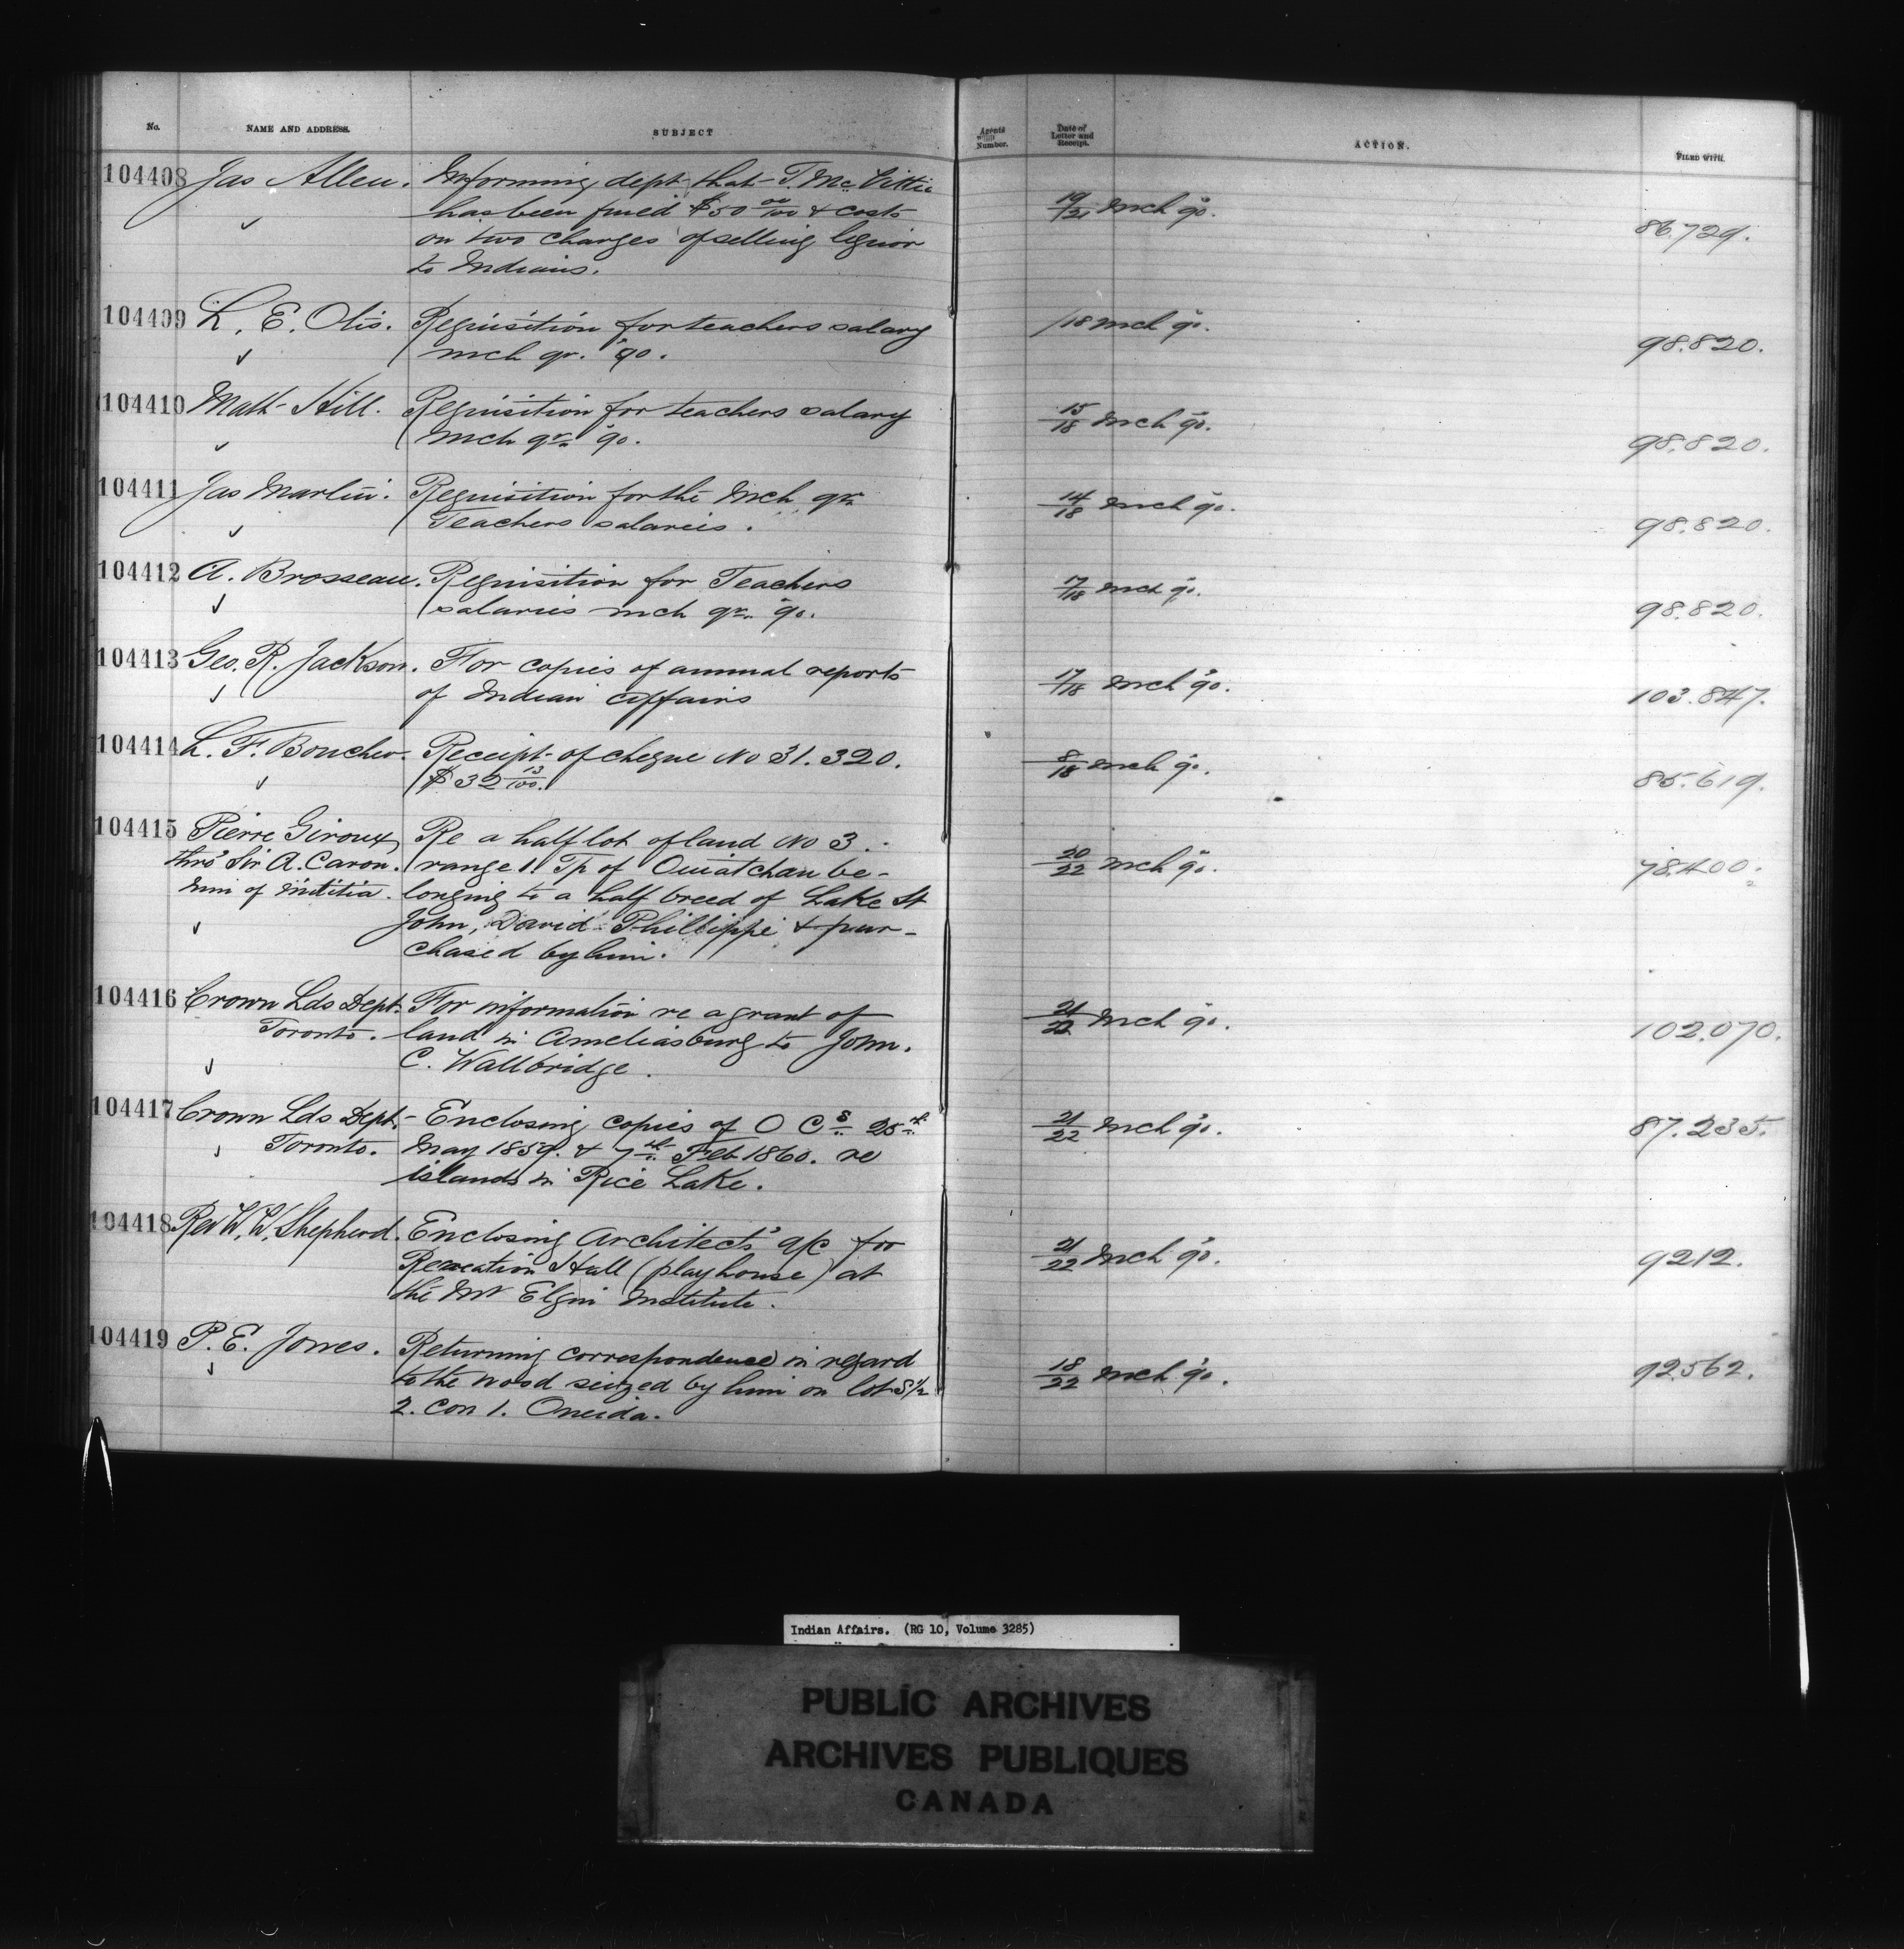 No. NAME AND ADDRESS. SUBJECT Agents Number. Date of Letter and Receipt. ACTION. FILED WITH.
104408 Jas Allen. Informing dept that T. McVittie
has been fined $50 00/100 & costs 19/21 Mch 90. 86.729.
on two charges of selling liquor
to Indians.
104409 L. E. Otis. Requisition for teachers salary /18 Mch 90.
mch qr. 90. 98.820.
104410 Matt Hill. Requisition for teachers salary 15/18 Mch 90.
mch qr. 90. 98.820.
104411 Jas Martin. Requisition for the Mch qr. 14/18 Mch 90.
Teachers salaries. 98.820.
104412 A. Brosseau. Requisition for Teachers 17/18 Mch 90.
salaries mch qr. 90. 98.820.
104413 Geo. R. Jackson. For copies of annual reports 17/18 Mch 90.
of Indian Affairs 103.847.
104414 L. F. Boucher. Receipt of cheque No 31.320. 8/18 Mch 90.
$32 13/100. 85.619.
104415 Pierre Giroux Re a half lot of land No 3.
thro' Sir A. Caron. range 1 Tp of Ouiatchan be- 20/22 Mch 90. 78.400.
Min of Militia. longing to a half breed of Lake St
John, David Phillippe & pur-
chased by him.
104416 Crown Lds Dept. For information re a grant of 21/22 Mch 90.
Toronto. land in Ameliasburg to John. 102.070.
C. Wallbridge.
104417 Crown Lds Dept. Enclosing copies of O Cs 25th 21/22 Mch 90. 87.235.
Toronto. May 1859. & 7th Feb 1860. re
islands in Rice Lake.
104418 Rev W. W. Shepherd. Enclosing Architects' a/c for 21/22 Mch 90. 9212.
Recreation Hall (playhouse) at
the Mt Elgin Institute.
104419 P. E. Jones. Returning correspondence in regard 18/22 Mch 90. 92562.
to the wood seized by him on lot S 1/2
2. Con 1. Oneida.
Indian Affairs. (RG 10, Volume 3285)
PUBLIC ARCHIVES
ARCHIVES PUBLIQUES
CANADA